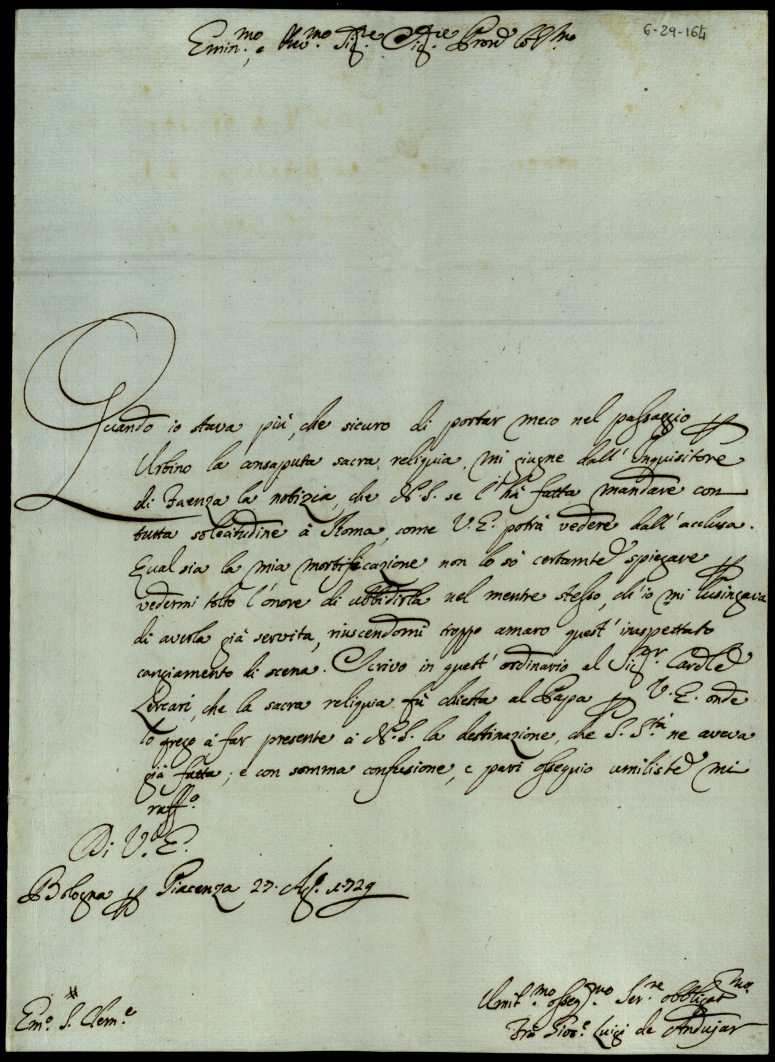 6-29-164
Emin.mo, e Rev.mo Sig.re Sig.re Pron Col.mo
Quando io stava più, che sicuro di portar meco nel passaggio p
Urbino la consaputa sacra reliquia, mi giugne dall' Inquisitore
di Faenza la notizia, che N. S. se l'hà fatta mandare con
tutta solecitudine à Roma, come V. E. potrà vedere dall' acclusa.
Qual sia la mia mortificazione non lo sò certamte spiegare p
vedermi tolto l'onore di ubbidirla nel mentre stesso, ch'io mi lusingava
di averla già servita, riuscendomi troppo amaro quest' inaspettato
cangiamento di scena. Scrivo in quest' ordinario al Sig.r Cardle
Lercari, che la sacra reliquia fù chiesta al Papa p V. E. onde
lo prego à far presente à N. S. la destinazione, che S. S.tà ne aveva
già fatta; e con somma confusione, e pari ossequio umiliste mi
raff.o
Di V. E.
Bologna p Piacenza 27. Ag.o 1729
Umil.mo osseq.mo Ser.re obbligat.mo
Frà Giov.i Luigi de Andujar
Em.o S. Clem.e